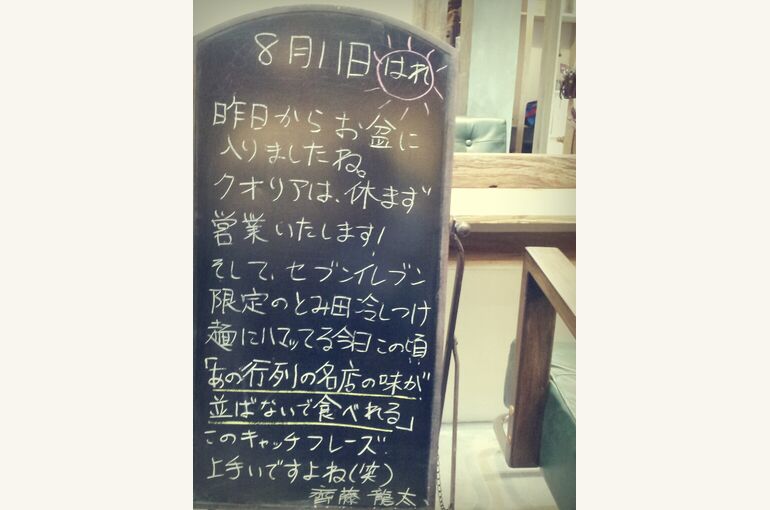 8月11日 はれ
昨日からお盆に
入りましたね。
クオリアは、休まず
営業いたします!
そして、セブンイレブン
限定のとみ田冷しつけ
麺にハマッてる今日この頃
「あの行列の名店の味が
並ばないで食べれる」
このキャッチフレーズ!
上手いですよね(笑)
齊藤龍太